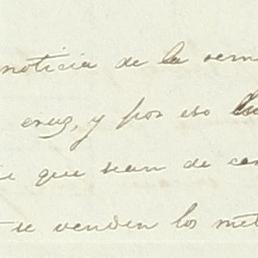 noticia de la rem
cruz, y por eso
que sean de con
se venden los met